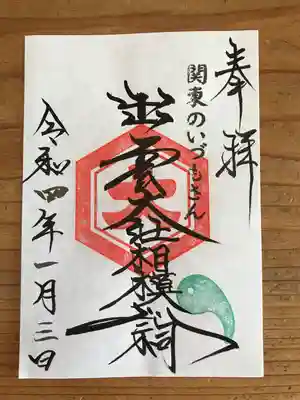 奉拝
関東のいづもさん
出雲大社相模分祠
令和四年一月三日